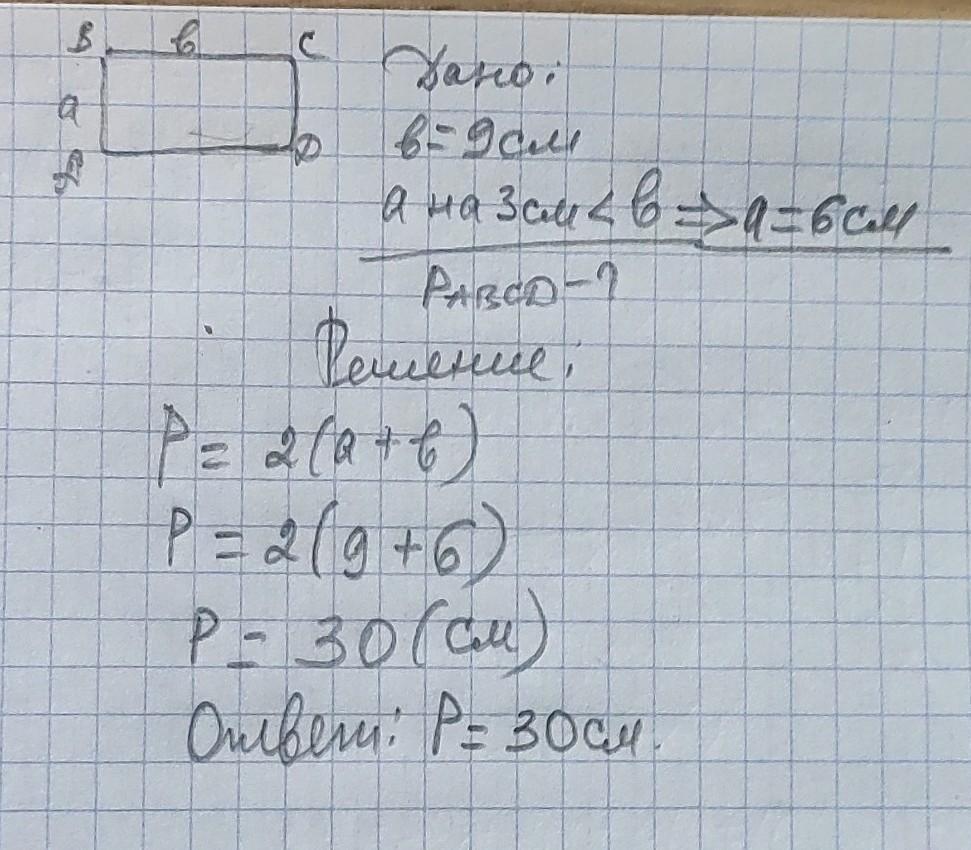 В в С
а
А D
Дано:
в = 9 см
а на 3 см < в => а = 6 см
PABCD - ?
Решение:
P = 2(а + в)
P = 2(9 + 6)
P = 30 (см)
Ответ: P = 30 см.